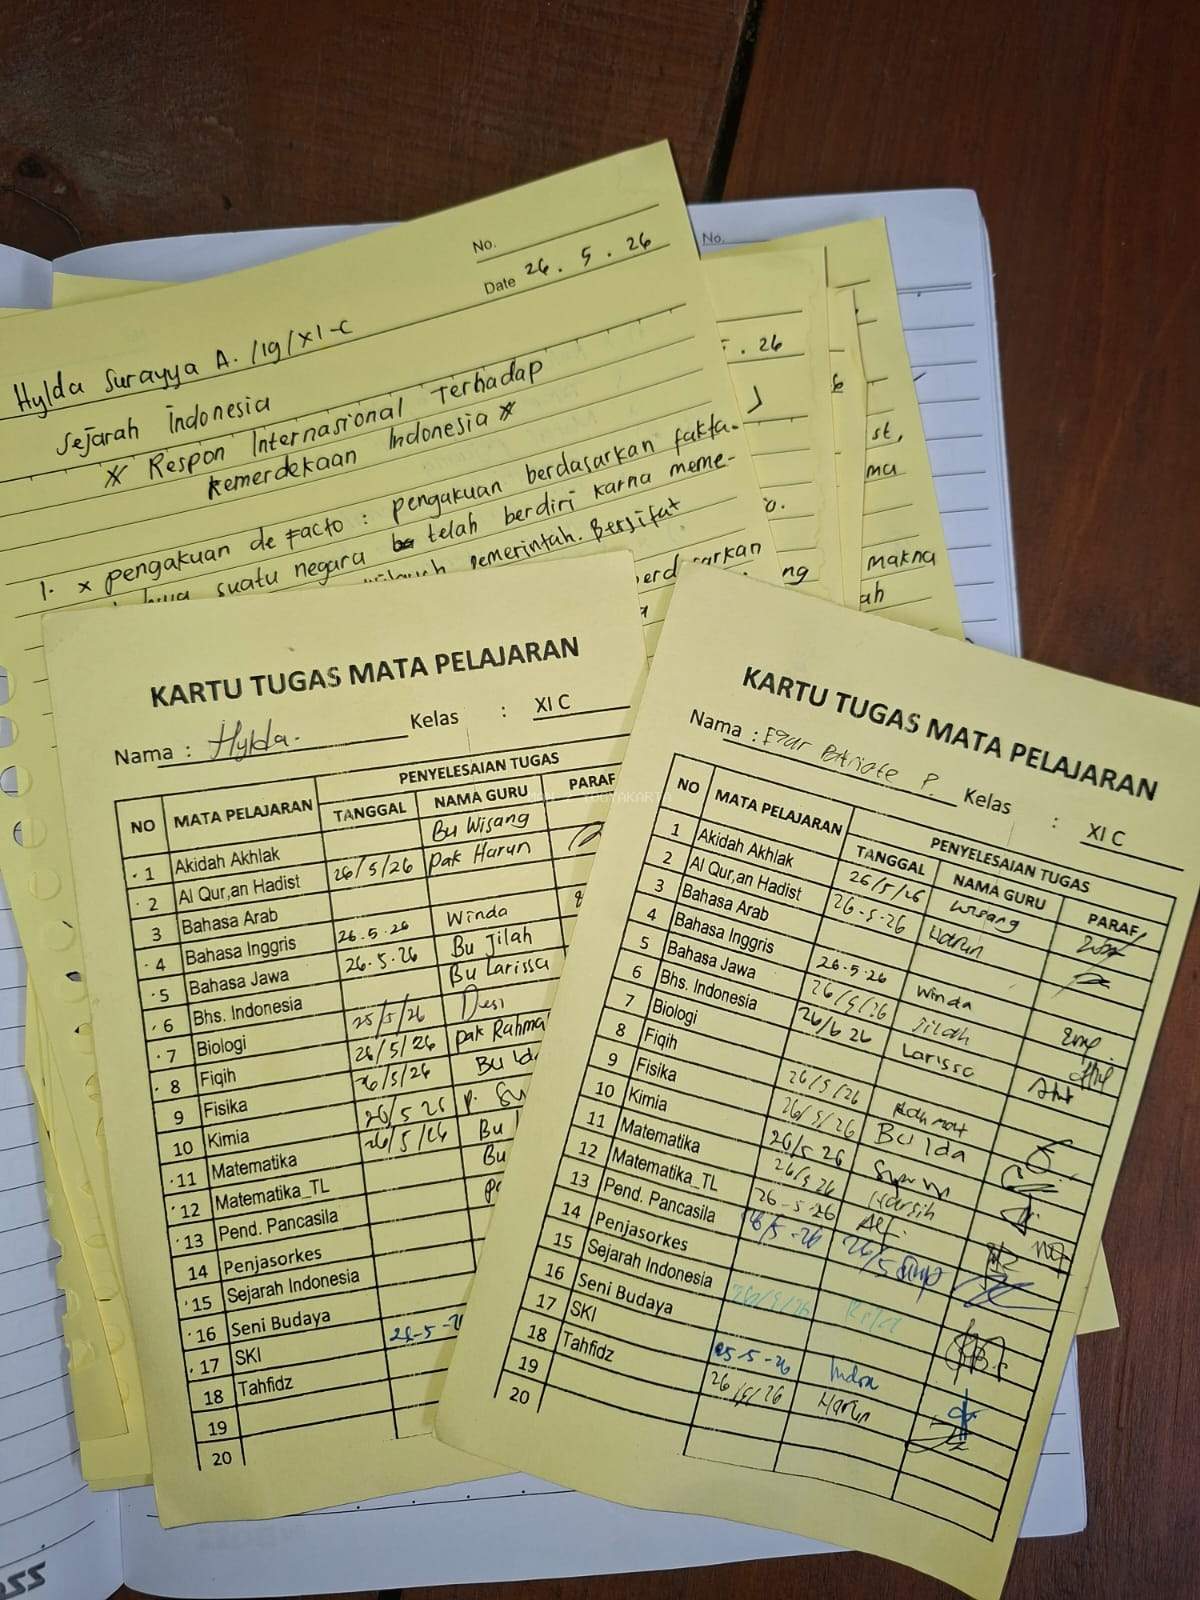 No.
Date 26 . 5 . 26
Hylda Surayya A. /19/XI-C
Sejarah Indonesia
* Respon Internasional Terhadap
Kemerdekaan Indonesia *
1. * pengakuan de facto : pengakuan berdasarkan fakta.
suatu negara telah berdiri karna meme-
pemerintah. Bersifat
No.
. 26
st,
ma
makna
ah
ng
KARTU TUGAS MATA PELAJARAN
Nama : Hylda. Kelas : XI C
NO MATA PELAJARAN PENYELESAIAN TUGAS
TANGGAL NAMA GURU PARAF
1 Akidah Akhlak Bu Wisang
2 Al Qur,an Hadist 26/5/26 pak Harun
3 Bahasa Arab
4 Bahasa Inggris 26.5.26 Winda
5 Bahasa Jawa 26.5.26 Bu Jilah
6 Bhs. Indonesia Bu Larissa
7 Biologi 25/5/26 Desi
8 Fiqih 26/5/26 pak Rahma
9 Fisika 26/5/26 Bu Ida
10 Kimia 26/5 26 p.
11 Matematika 26/5/26 Bu
12 Matematika_TL Bu
13 Pend. Pancasila
14 Penjasorkes
15 Sejarah Indonesia
16 Seni Budaya
17 SKI 26-5-
18 Tahfidz
19
20
KARTU TUGAS MATA PELAJARAN
Nama : Patriote P. Kelas : XI C
NO MATA PELAJARAN PENYELESAIAN TUGAS
TANGGAL NAMA GURU PARAF
1 Akidah Akhlak 26/5/26 Wisang
2 Al Qur,an Hadist 26-5-26 Harun
3 Bahasa Arab
4 Bahasa Inggris 26.5.26 Winda
5 Bahasa Jawa 26/5/26 Jilah
6 Bhs. Indonesia 26/5 26 Larissa
7 Biologi
8 Fiqih 26/5/26 Rahmat
9 Fisika 26/5/26 Bu Ida
10 Kimia 26/5 26
11 Matematika 26/5 26 Harsih
12 Matematika_TL 26-5-26
13 Pend. Pancasila 26/5-26
14 Penjasorkes
15 Sejarah Indonesia 26/5/26
16 Seni Budaya
17 SKI 25/5-26 Indra
18 Tahfidz 26/5/26 Harun
19
20